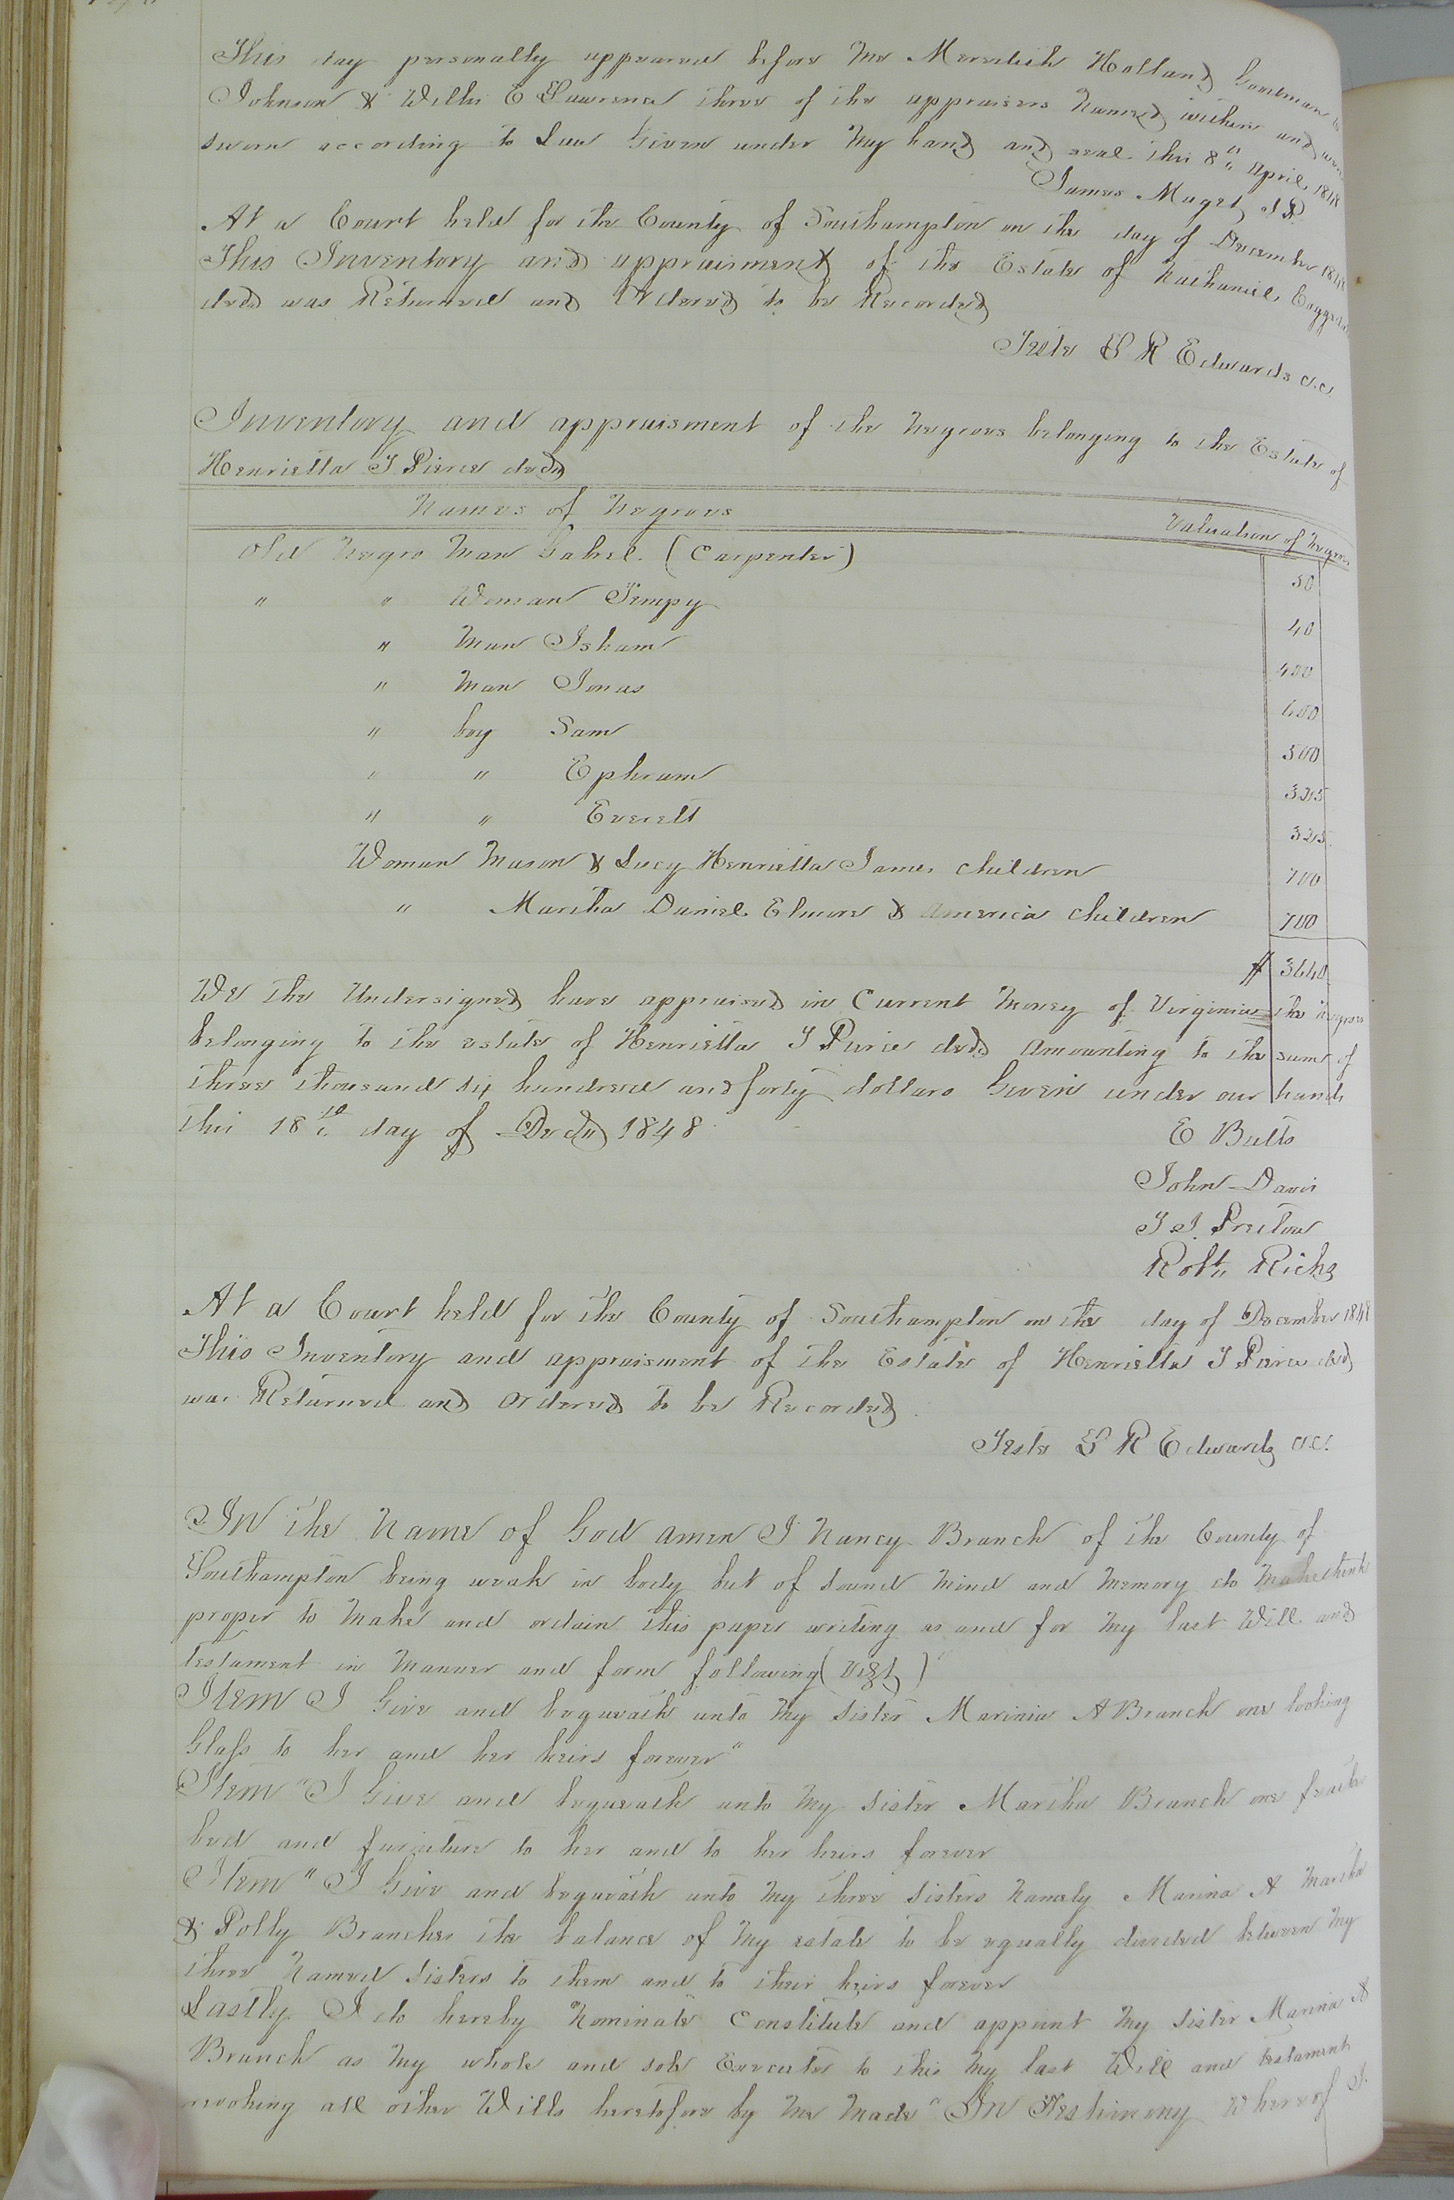 This day personally appeared before me Meredith Holland Goodman
Johnson & Willis E Lawrence three of the appraisers named within and were
sworn according to Law Given under my hand and seal this 8th April 1848
James Maget J P
At a Court held for the County of Southampton on the day of December 1848
This Inventory and appraisment of the Estate of Nathaniel
decd was Returned and Ordered to be Recorded
Teste L R Edwards C.C.
Inventory and appraisment of the Negroes belonging to the Estate of
Henrietta T Pierce decd
Names of Negroes Valuation of Negroes
Old Negro Man Gabrel (Carpenter) 50
" " Woman Tempy 40
" Man Isham 400
" Man Jonas 600
" boy Sam 500
" " Ephram 325
" " Everett 325
Woman Mason & Lucy Henrietta James children 700
" Martha Daniel Elmore & America children 700
$ 3640
We the Undersigned have appraised in Current Money of Virginia the Negroes
belonging to the estate of Henrietta T Pierce decd Amounting to the sum of
three thousand six hundred and forty dollars Given under our hands
this 18th day of Decr 1848
E Butts
John Davis
T J. Pretlow
Robt Ricks
At a Court held for the County of Southampton on the day of December 1848
This Inventory and appraisment of the Estate of Henrietta T Pierce decd
was Returned and Ordered to be Recorded
Teste L R Edwards C.C.
In the Name of God amen I Nancy Branch of the County of
Southampton being weak in body but of sound mind and memory do think
proper to make and ordain this paper writing as and for my last Will and
testament in manner and form following (vizt)
Item I Give and bequeath unto my sister Marinia A Branch one looking
Glass to her and her heirs forever"
Item " I Give and bequeath unto my sister Martha Branch one feather
bed and furniture to her and to her heirs forever
Item " I Give and bequeath unto my three sisters namely Marina A Martha
& Polly Branches the balance of my estate to be equally divided between my
three named sisters to them and to their heirs forever
Lastly I do hereby nominate Constitute and appoint my sister Marina A
Branch as my whole and sole Executor to this my last Will and testament
revoking all other Wills heretofore by me made " In Testimony whereof I